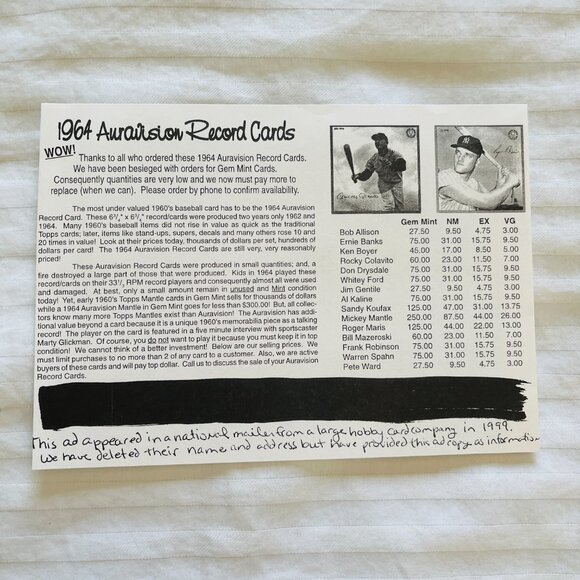 1964 Auravision Record Cards
WOW!
Thanks to all who ordered these 1964 Auravision Record Cards.
We have been besieged with orders for Gem Mint Cards.
Consequently quantities are very low and we now must pay more to
replace (when we can). Please order by phone to confirm availability.
The most under valued 1960's baseball card has to be the 1964 Auravision
Record Card. These 6¾" x 6¾" record/cards were produced two years only 1962 and
1964. Many 1960's baseball items did not rise in value as quick as the traditional
Topps cards; later, items like stand-ups, supers, decals and many others rose 10 and
20 times in value! Look at their prices today, thousands of dollars per set, hundreds of
dollars per card! The 1964 Auravision Record Cards are still very, very reasonably
priced!
These Auravision Record Cards were produced in small quantities; and, a
fire destroyed a large part of those that were produced. Kids in 1964 played these
record/cards on their 33⅓ RPM record players and consequently almost all were used
and damaged. At best, only a small amount remain in unused and Mint condition
today! Yet, early 1960's Topps Mantle cards in Gem Mint sell for thousands of dollars
while a 1964 Auravision Mantle in Gem Mint goes for less than $300.00! But, all collec-
tors know many more Topps Mantles exist than Auravision! The Auravision has addi-
tional value beyond a card because it is a unique 1960's memorabilia piece as a talking
record! The player on the card is featured in a five minute interview with sportscaster
Marty Glickman. Of course, you do not want to play it because you must keep it in top
condition! We cannot think of a better investment! Below are our selling prices. We
must limit purchases to no more than 2 of any card to a customer. Also, we are active
buyers of these cards and will pay top dollar. Call us to discuss the sale of your Auravision
Record Cards.
Gem Mint NM EX VG
Bob Allison 27.50 9.50 4.75 3.00
Ernie Banks 75.00 31.00 15.75 9.50
Ken Boyer 45.00 17.00 8.50 5.00
Rocky Colavito 60.00 23.00 11.50 7.00
Don Drysdale 75.00 31.00 15.75 9.50
Whitey Ford 75.00 31.00 15.75 9.50
Jim Gentile 27.50 9.50 4.75 3.00
Al Kaline 75.00 31.00 15.75 9.50
Sandy Koufax 125.00 47.00 31.00 13.75
Mickey Mantle 250.00 87.50 44.00 26.00
Roger Maris 125.00 44.00 22.00 13.00
Bill Mazeroski 60.00 23.00 11.50 7.00
Frank Robinson 75.00 31.00 15.75 9.50
Warren Spahn 75.00 31.00 15.75 9.50
Pete Ward 27.50 9.50 4.75 3.00
This ad appeared in a national mailer from a large hobby card company in 1999.
We have deleted their name and address but have provided this ad copy as information